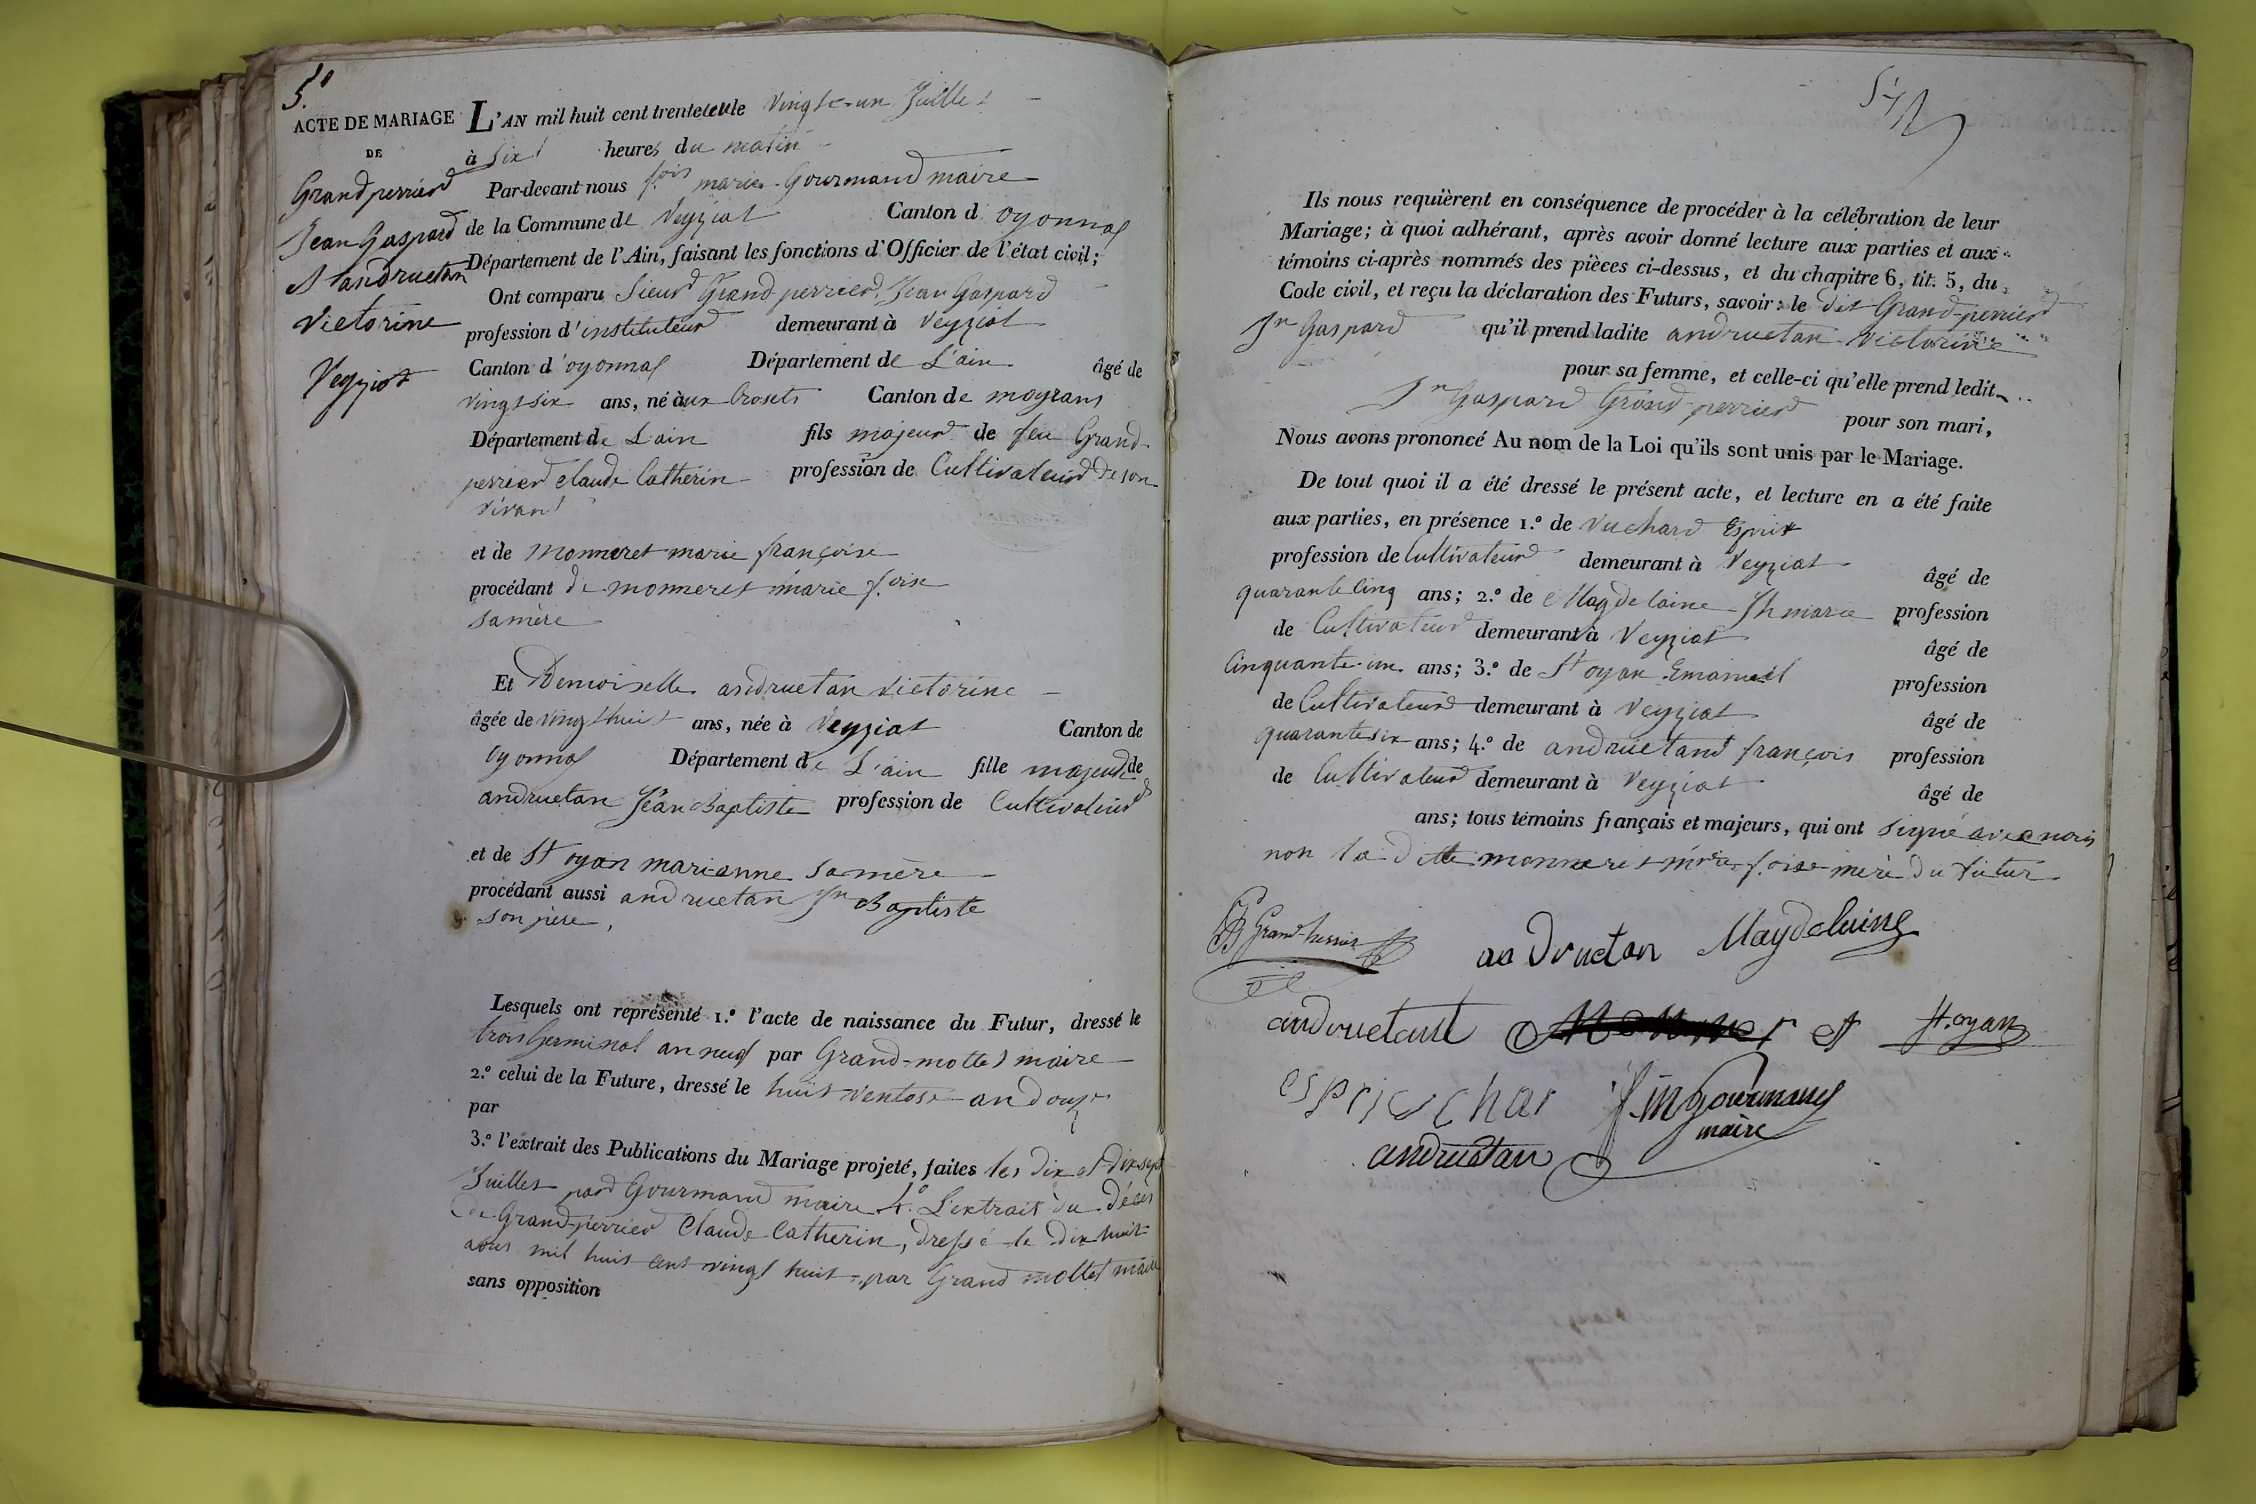 5.e
ACTE DE MARIAGE
DE
Grandperrier
Jean Gaspard
et andruetan
victorine
Veyziat
L'AN mil huit cent trente vingt-un Juillet
à six heures du matin
Par-devant nous f.ois marie Gourmand maire
de la Commune de Veyziat Canton d oyonnax
Département de l'Ain, faisant les fonctions d'Officier de l'état civil;
Ont comparu Sieur Grand perrier, Jean Gaspard
profession d'instituteur demeurant à Veyziat
Canton d'oyonnax Département de L'ain âgé de
vingt six ans, né aux Crosets Canton de moyrans
Département de L'ain fils majeur de feu Grand-
perrier Claude Catherin profession de Cultivateur de son
vivant
et de Monneret marie françoise
procédant de monneret marie f.oise
sa mère
Et Demoiselle andruetan victorine
âgée de vingt huit ans, née à Veyziat Canton de
oyonnax Département de L'ain fille majeure de
andruetan Jean Baptiste profession de Cultivateur
et de St oyan marianne sa mère
procédant aussi andruetan Jn Baptiste
son père,
Lesquels ont représenté 1.º l'acte de naissance du Futur, dressé le
trois Germinal an neuf par Grand-mottet maire
2.º celui de la Future, dressé le huit ventose an douze
par
3.º l'extrait des Publications du Mariage projeté, faites les dix et dix sept
Juillet par Gourmand maire 4.º L'extrait du décès
de Grandperrier Claude Catherin, dressé le dix huit
aout mil huit cent vingt huit par Grand mottet maire
sans opposition
Ils nous requièrent en conséquence de procéder à la célébration de leur
Mariage; à quoi adhérant, après avoir donné lecture aux parties et aux
témoins ci-après nommés des pièces ci-dessus, et du chapitre 6, tit. 5, du
Code civil, et reçu la déclaration des Futurs, savoir: le dit Grand-perrier
Jn Gaspard qu'il prend ladite andruetan victorine
pour sa femme, et celle-ci qu'elle prend ledit
Jn Gaspard Grand perrier pour son mari,
Nous avons prononcé Au nom de la Loi qu'ils sont unis par le Mariage.
De tout quoi il a été dressé le présent acte, et lecture en a été faite
aux parties, en présence 1.º de Vuchard Esprit
profession de Cultivateur demeurant à Veyziat âgé de
quarante cinq ans; 2.º de Magdelaine Jh marie profession
de Cultivateur demeurant à Veyziat âgé de
Cinquante-un ans; 3.º de St oyan Emanuel profession
de Cultivateur demeurant à Veyziat âgé de
quarante six ans; 4.º de andruetant françois profession
de Cultivateur demeurant à Veyziat âgé de
ans; tous témoins français et majeurs, qui ont signé avec nous
non la ditte monneret marie f.oise mère du futur
Grand-perrier andructon Magdelaine
andruetant St. oyan
esprit vuchar f.m gourmand
maire
andruetan